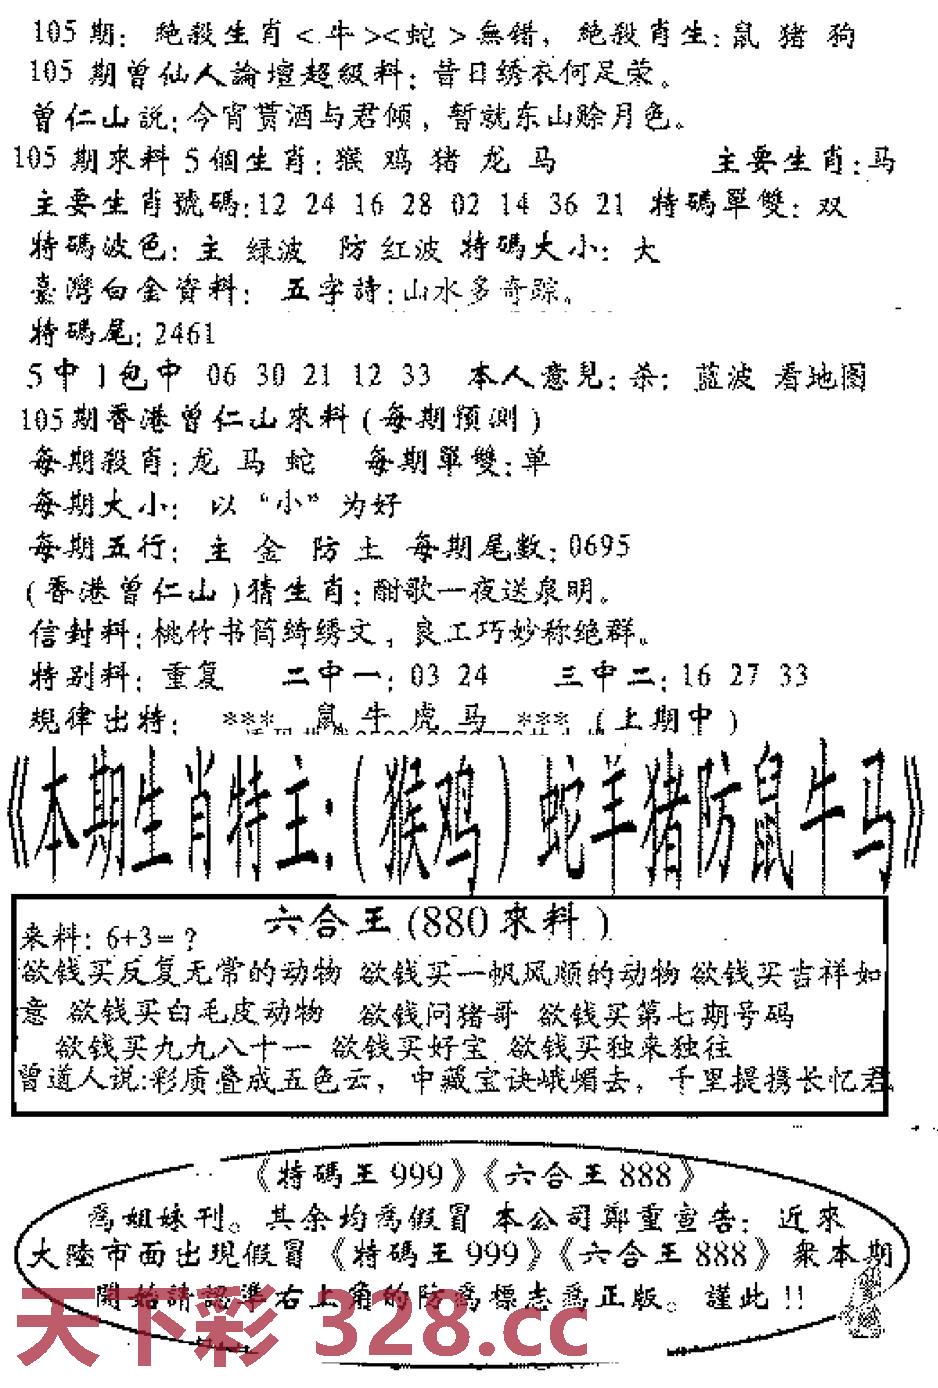 105期: 絶殺生肖<牛><蛇>無错, 絶殺肖生:鼠 猪 狗
105期曾仙人論壇超級料:昔日绣衣何足荣。
曾仁山説:今宵贳酒与君倾，暂就东山赊月色。
105期來料5個生肖:猴 鸡 猪 龙 马 主要生肖:马
主要生肖號碼:12 24 16 28 02 14 36 21 特碼單雙:双
特碼波色:主 绿波 防 红波 特碼大小:大
臺灣白金資料: 五字詩:山水多奇踪。
特碼尾:2461
5中1包中 06 30 21 12 33 本人意見:恭: 蓝波 看地图
105期香港曾仁山來料(每期預測)
每期殺肖:龙 马 蛇 每期單雙:单
每期大小: 以“小”为好
每期五行: 主 金 防 土 每期尾数:0695
(香港曾仁山)猜生肖:酣歌一夜送泉明。
信封料:桃竹书筒绮绣文，良工巧妙称绝群。
特别料:重复 二中一:03 24 三中二:16 27 33
規律出特: *** 鼠 牛 虎 马 *** (上期中)
《本期生肖特主:(猴鸡)蛇羊猪防鼠牛马》
六合王(880來料)
来料: 6+3=?
欲钱买反复无常的动物 欲钱买一帆风顺的动物 欲钱买吉祥如
意 欲钱买白毛皮动物 欲钱问猪哥 欲钱买第七期号码
欲钱买九九八十一 欲钱买好宝 欲钱买独来独往
曾道人说:彩质叠成五色云，中藏宝诀峨嵋去，千里提携长忆君
《特碼王999》《六合王888》
爲姐妹刊。其余均爲假冒 本公司鄭重宣告: 近來
大陸市面出現假冒《特碼王999》《六合王888》衆本期
開始請認準右上角的防爲標志爲正版。謹此!!
天下彩 328.cc